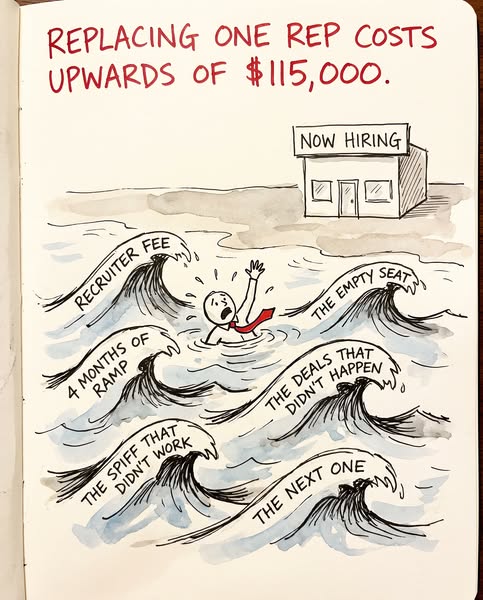 REPLACING ONE REP COSTS
UPWARDS OF $115,000.
NOW HIRING
RECRUITER FEE
THE EMPTY SEAT
4 MONTHS OF
RAMP
THE DEALS THAT
DIDN'T HAPPEN
THE SPIFF THAT
DIDN'T WORK
THE NEXT ONE